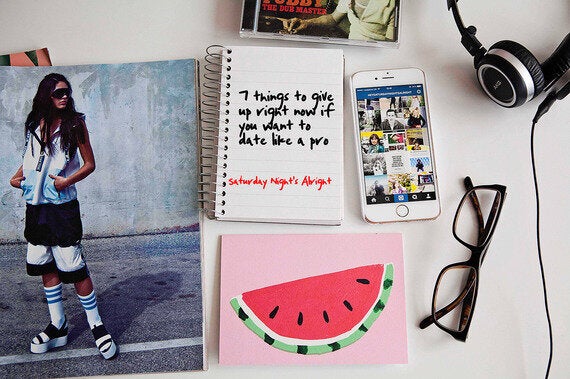 THE DUB MASTER
7 things to give
up right now if
you want to
date like a pro
Saturday Night's Alright
AKG